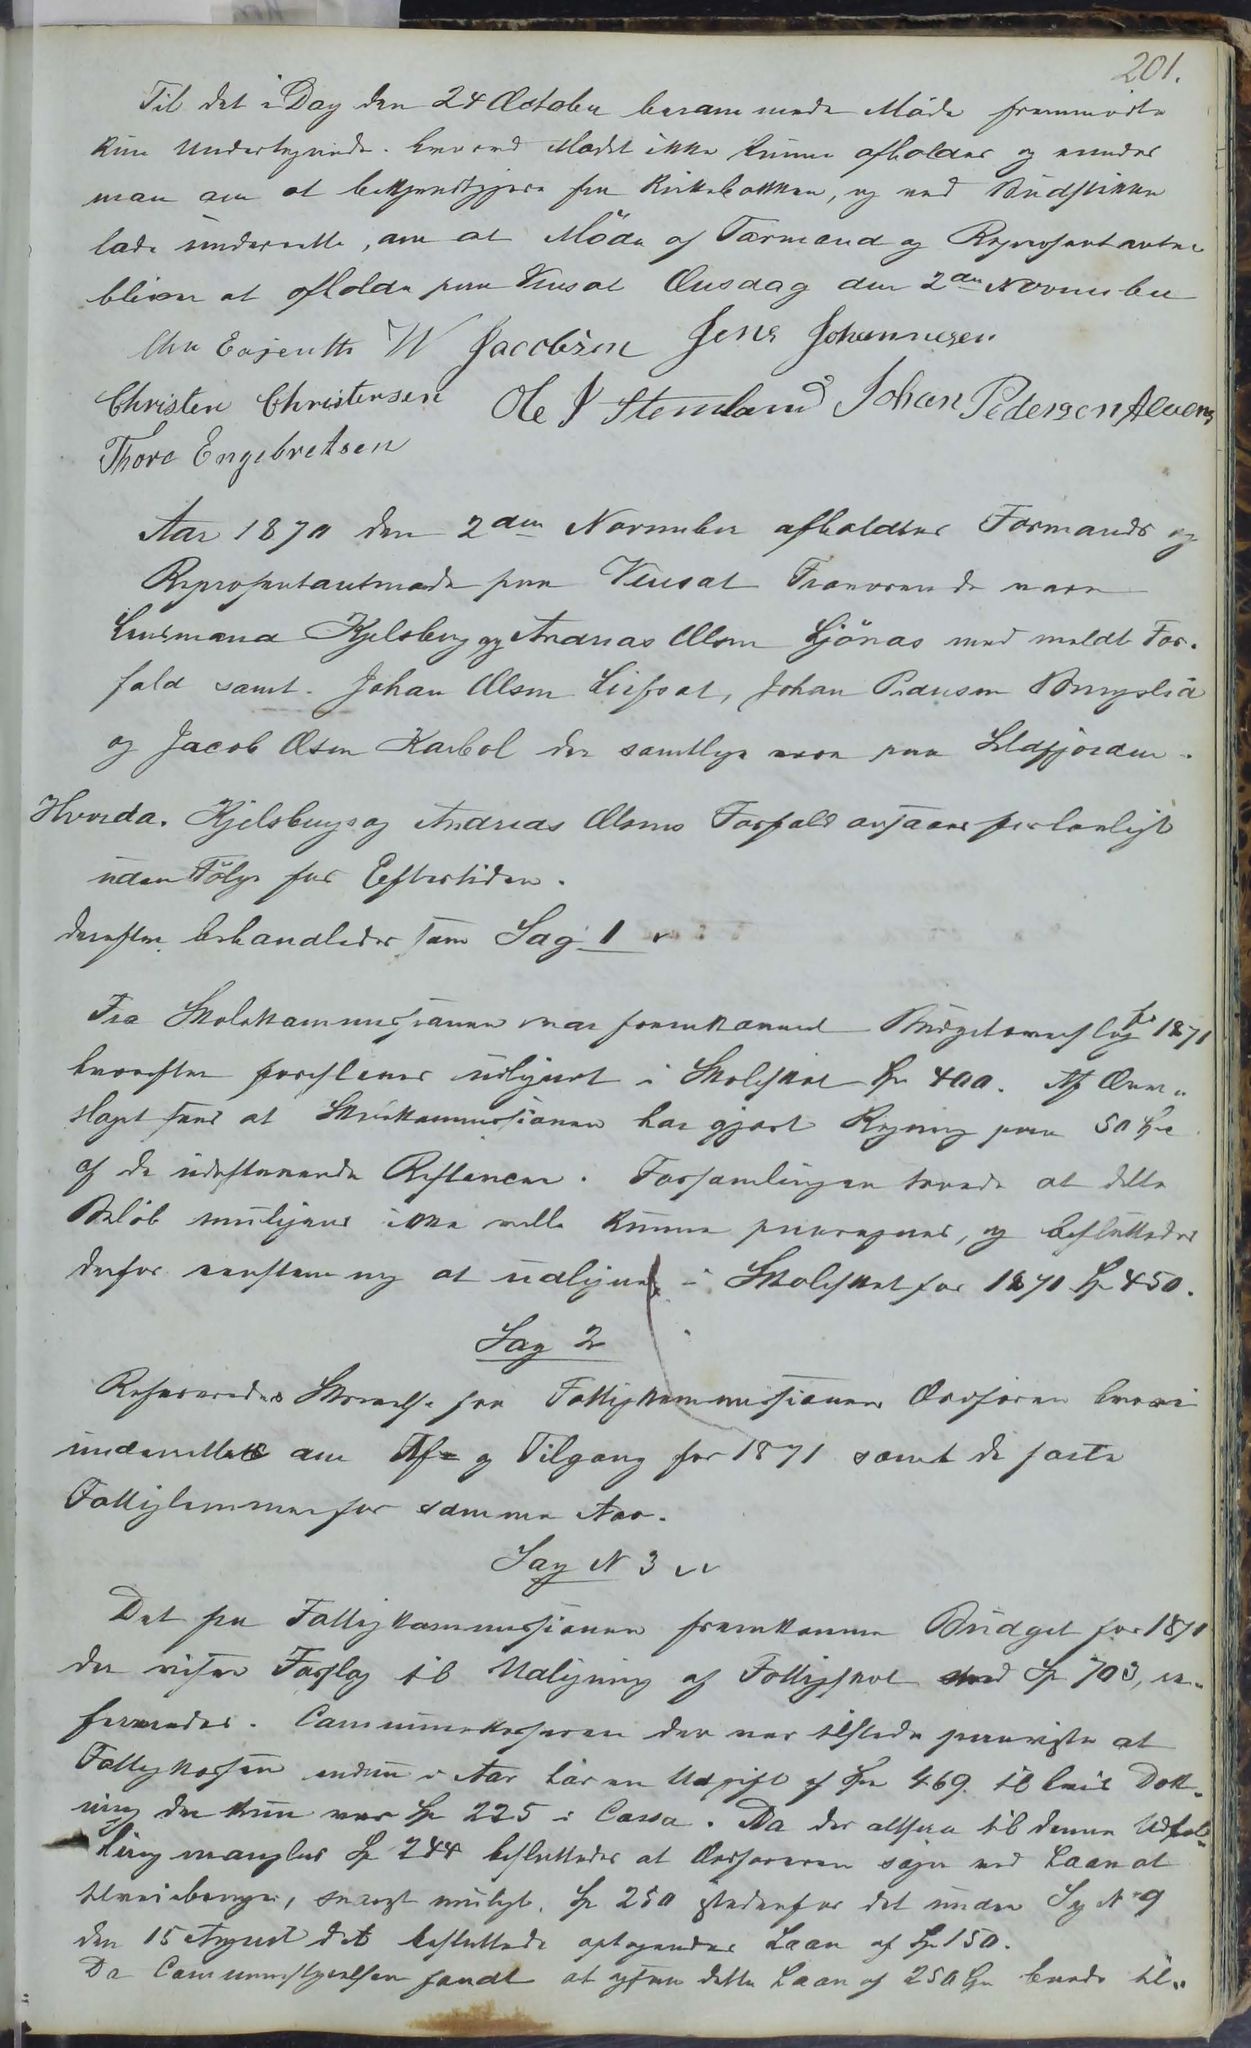 201.
Til det i Dag den 24 October berammede Møde fremmødte
kun Undertegnede. hvorved Mødet ikke kunne afholdes og enedes
man om at bekjendtgjøre fra Kirkebakken, og ved Budstikken
lade underrette, om at Møde af Formænd og Repræsentanter
bliver at afholde paa Viusat Onsdag den 2den November
Chr Enjenth W Jacobsen Jens Johannesen
Christen Christensen Ole J Stemland Johan Pedersen
Thore Engebretsen
Aar 1870 den 2den November afholdtes Formands og
Repræsentantmøde paa Viusat Fraværende vare
Lensmand Kjelsberg og Andreas Olsen Ljönæs med meldt For-
fald samt. Johan Olsen, Johan Pedersen
og Jacob Olsen Karbøl der samtlige vare paa Sildfjorden.
Hvorda. Kjelsbergs og Andreas Olsens Forfald ansaaes for lovligt
uden Følge for Eftertiden.
derefter behandledes som Sag 1
Fra Skolekommissionen var fremkommet Budgetoverslag for 1871
hvorefter foreslaaes udlignet i Skoleskat Sp 400. Af Over-
slaget saaes at Skolekommissionen har gjort Regning paa 50 Spd
af de udestaaende Restancer. Forsamlingen troede at dette
Beløb muligens ikke ville kunne paaregnes, og besluttedes
derfor eenstemmig at udligne i Skoleskat for 1871 Sp 450.
Sag 2
Refereredes Skrivelse fra Fattigkommissionens Ordfører hvori
underrettede om Af- og Tilgang for 1871 samt de faste
Fattiglemmer for samme Aar.
Sag N 3
Det fra Fattigkommissionen fremkomne Budget for 1871
der viser Forslag til Udligning af Fattigskat stor Sp 703, re-
fereredes. Communekasseren der var tilstede paaviste at
Fattigkassen endnu i Aar har en Udgift af Sp 469. til hvis Dæk-
ning der kun var Sp 225 i Cassa. Da der altsaa til denne Udbeta-
ling mangler Sp 244 besluttedes at Ordføreren søger ved Laan at
tilveiebringe, snarest muligt. Sp 250 istedenfor det under Sag No 9
den 15 August det besluttede optagendes Laan af Sp 150.
Da Communestyrelsen fandt at ogsaa dette Laan af 250 Sp burde til-